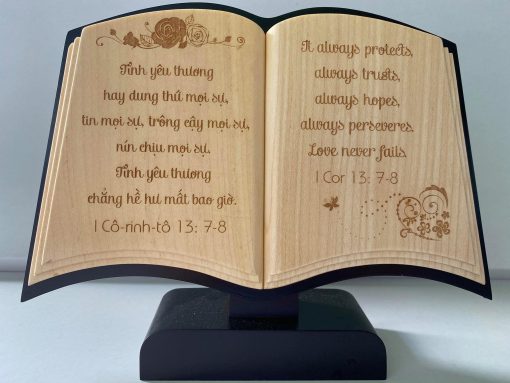 Tình yêu thương
hay dung thứ mọi sự,
tin mọi sự, trông cậy mọi sự,
nín chịu mọi sự.
Tình yêu thương
chẳng hề hư mất bao giờ.
I Cô-rinh-tô 13: 7-8
It always protects,
always trusts,
always hopes,
always perseveres.
Love never fails.
I Cor 13: 7-8